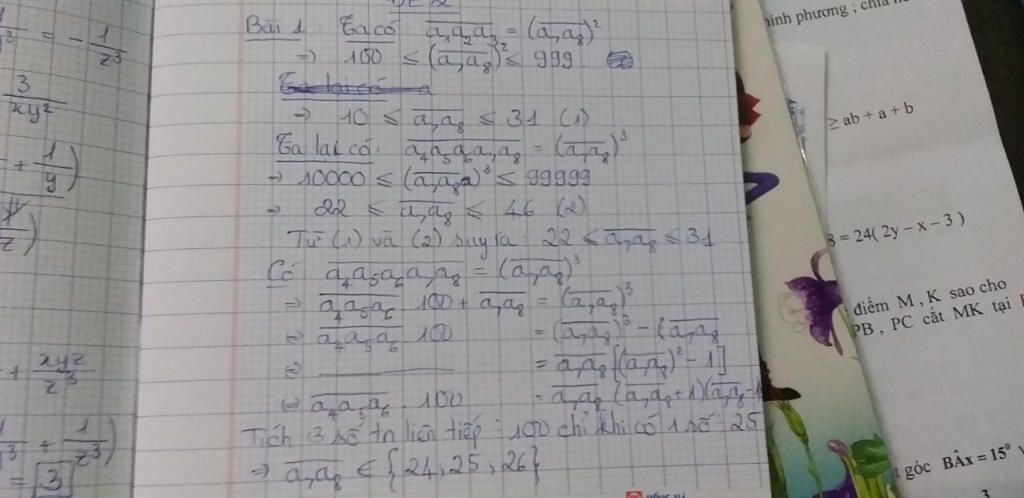 Bài 1 Ta có a₁a₂a₃ = (a₇a₈)²
⇒ 100 ≤ (a₇a₈)² ≤ 999
⇒ 10 ≤ a₇a₈ ≤ 31 (1)
Ta lại có: a₄a₅a₆a₇a₈ = (a₇a₈)³
⇒ 10000 ≤ (a₇a₈)³ ≤ 99999
⇒ 22 ≤ a₇a₈ ≤ 46 (2)
Từ (1) và (2) suy ra: 22 ≤ a₇a₈ ≤ 31
Có a₄a₅a₆a₇a₈ = (a₇a₈)³
⇒ a₄a₅a₆ . 100 + a₇a₈ = (a₇a₈)³
⇔ a₄a₅a₆ . 100 = (a₇a₈)³ - (a₇a₈
⇔ = a₇a₈ [(a₇a₈)² - 1]
⇔ a₄a₅a₆ . 100 = a₇a₈ (a₇a₈ + 1)(a₇a₈ - 1
Tích 3 số tn liên tiếp ⋮ 100 chỉ khi có 1 số ⋮ 25
⇒ a₇a₈ ∈ {24, 25, 26}
= - 1/z³
3/xyz
+ 1/y)
+ xyz/z³
+ 1/z³)
= 3
hình phương ; chia
≥ ab + a + b
= 24( 2y − x − 3 )
điểm M , K sao cho
PB , PC cắt MK tại
góc BÂx = 15⁰
3